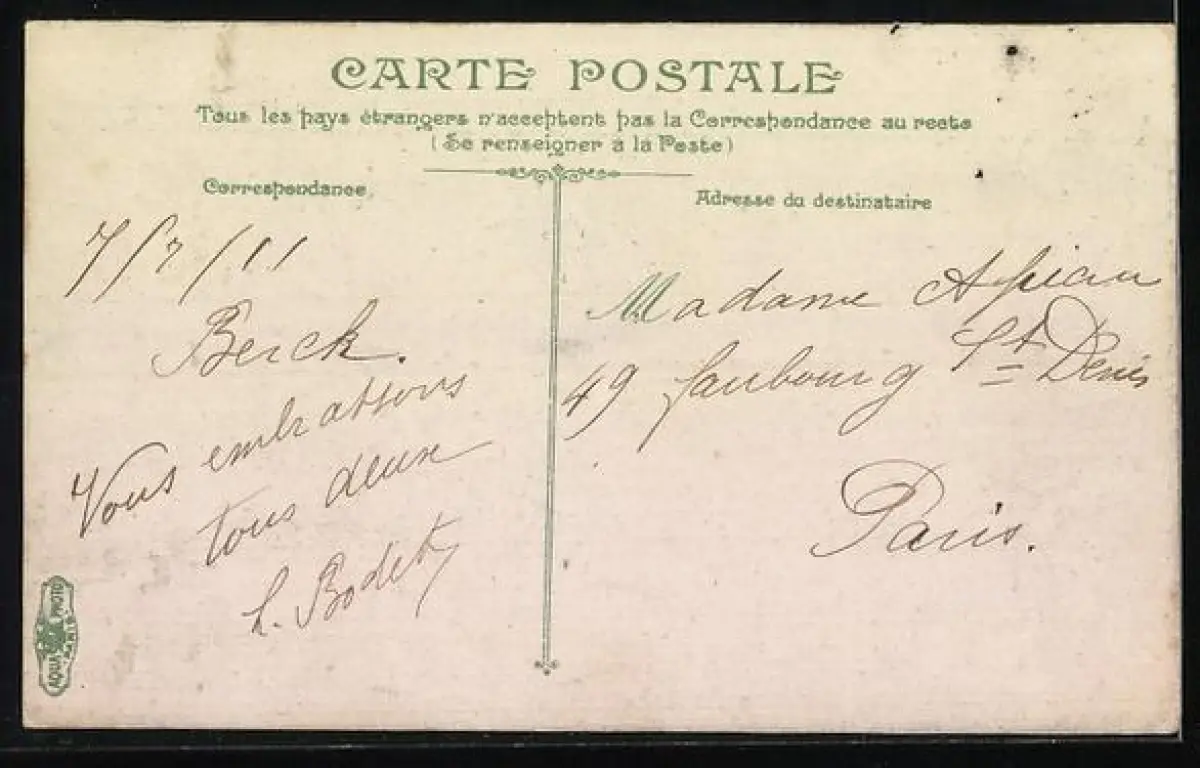 CARTE POSTALE
Tous les pays étrangers n'acceptent pas la Correspondance au recto
(Se renseigner à la Poste)
Correspondance
Adresse du destinataire
7/7/11
Berck.
Vous embrassons
tous deux
L. Bodet
Madame
49 faubourg St Denis
Paris.
AQUA PHOTO
PARIS